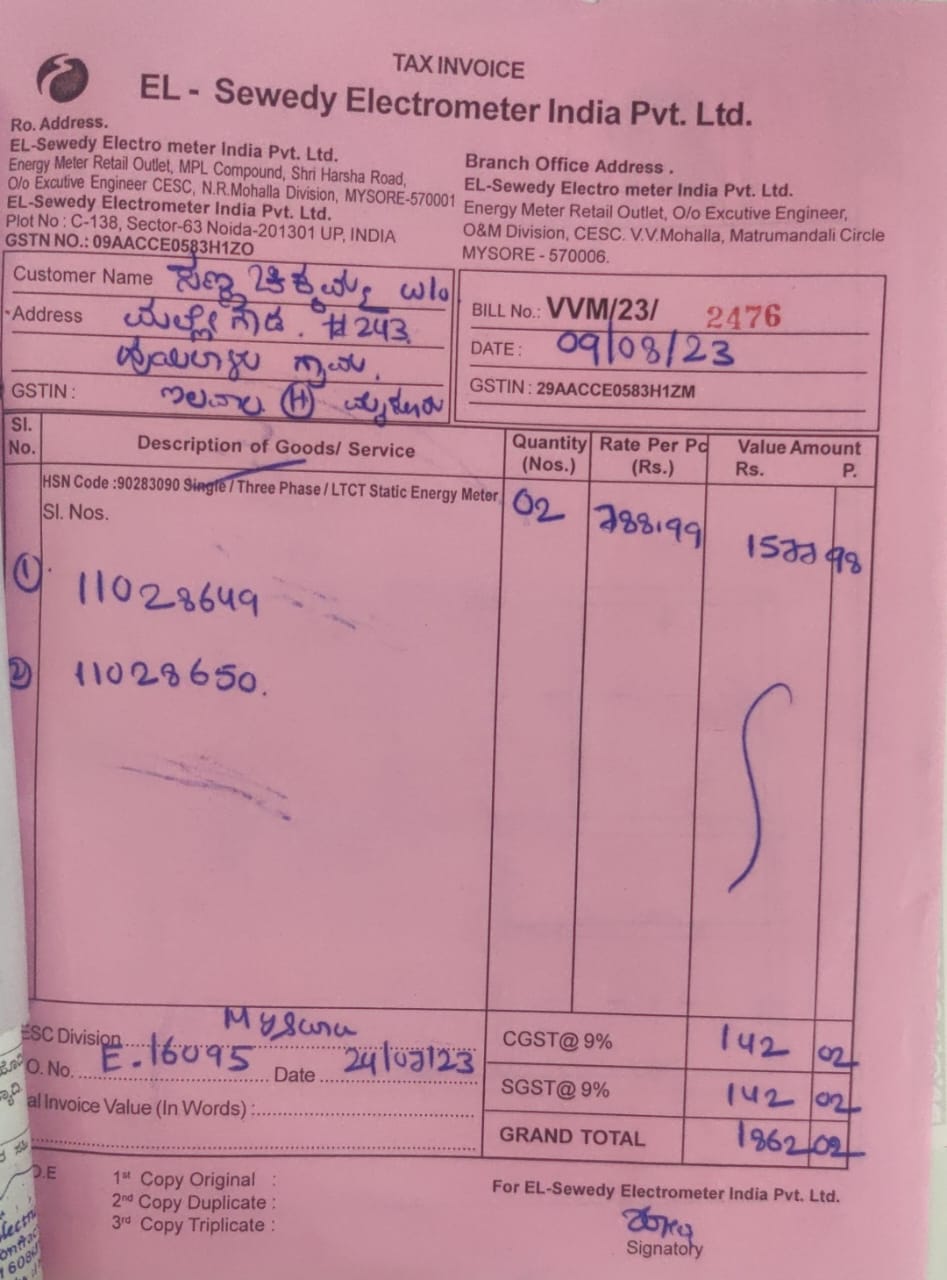 TAX INVOICE
EL - Sewedy Electrometer India Pvt. Ltd.
Ro. Address.
EL-Sewedy Electro meter India Pvt. Ltd.
Energy Meter Retail Outlet, MPL Compound, Shri Harsha Road,
O/o Excutive Engineer CESC, N.R.Mohalla Division, MYSORE-570001
EL-Sewedy Electrometer India Pvt. Ltd.
Plot No : C-138, Sector-63 Noida-201301 UP, INDIA
GSTN NO.: 09AACCE0583H1ZO
Branch Office Address .
EL-Sewedy Electro meter India Pvt. Ltd.
Energy Meter Retail Outlet, O/o Excutive Engineer,
O&M Division, CESC. V.V.Mohalla, Matrumandali Circle
MYSORE - 570006.
Customer Name ಸಣ್ಣ ಚಿಕ್ಕಮ್ಮ w/o
Address ಮಲ್ಲೇಗೌಡ. #243
ಗ್ರಾಮ.
GSTIN : ಇಲವಾಲ (H) ಮೈಸೂರು
BILL No.: VVM/23/ 2476
DATE : 09/08/23
GSTIN : 29AACCE0583H1ZM
Sl. No. Description of Goods/ Service Quantity (Nos.) Rate Per Pc (Rs.) Value Amount Rs. P.
HSN Code :90283090 Single / Three Phase / LTCT Static Energy Meter 02 788.99 1577 98
Sl. Nos.
1 11028649
2 11028650.
ESC Division Mysuru
O. No. E.16095 Date 24/07/23
al Invoice Value (In Words) :
CGST@ 9% 142 02
SGST@ 9% 142 02
GRAND TOTAL 1862 02
O.E
1st Copy Original :
2nd Copy Duplicate :
3rd Copy Triplicate :
For EL-Sewedy Electrometer India Pvt. Ltd.
Signatory